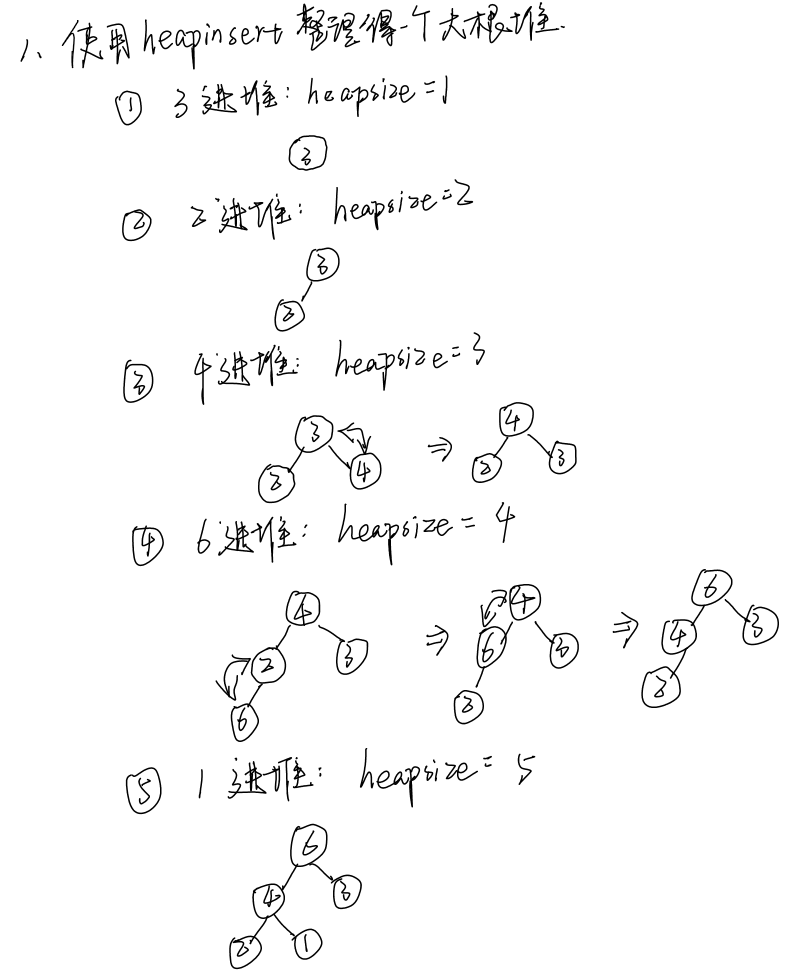 1、使用heapinsert 整理得一个大根堆.
① 3进堆: heapsize=1
3
② 2进堆: heapsize=2
3
2
③ 4进堆: heapsize=3
3 4
2 4 ⇒ 2 3
④ 6进堆: heapsize=4
4 4 6
2 3 ⇒ 6 3 ⇒ 4 3
6 2 2
⑤ 1进堆: heapsize=5
6
4 3
2 1